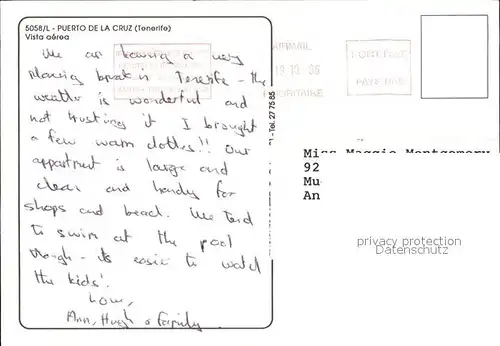 5058/L - PUERTO DE LA CRUZ (Tenerife)
Vista aérea
We are having a very
relaxing break in Tenerife - the
weather is wonderful and
not trusting it I brought
a few warm clothes!! Our
appartment is large and
clean and handy for
shops and beach. We tend
to swim at the pool
though - its easier to watch
the kids!
Love,
Ann, Hugh & Family.
AIRMAIL
PRIORITAIRE
PORT PAYE
Tel. 27 75 85
Miss Maggie Montgomery
92
Mu
An
privacy protection
Datenschutz